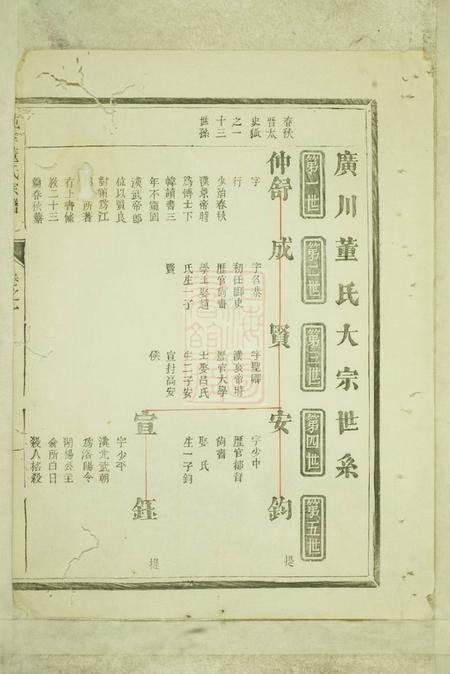 廣川董氏大宗世系
第一世
第二世
第三世
第四世
第五世
春秋
晉太
史狐
之一
十三
世孫
仲舒
字
行
少治春秋
漢景帝時
為博士下
幃讀書三
年不窺園
漢武帝即
位以賢良
對策為江
所著
有上書條
教二十三
篇春秋蘩
成
字名恭
初任御史
歷官尚書
學士娶趙
氏生一子
賢
賢
字聖卿
漢哀帝時
歷官大學
士娶呂氏
生二子安
宣封高安
侯
安
字少中
歷官都督
尚書
娶 氏
生一子鈞
鈞
提
宣
字少平
漢光武朝
為洛陽令
湖陽公主
倉所白日
殺人格殺
鈺
提